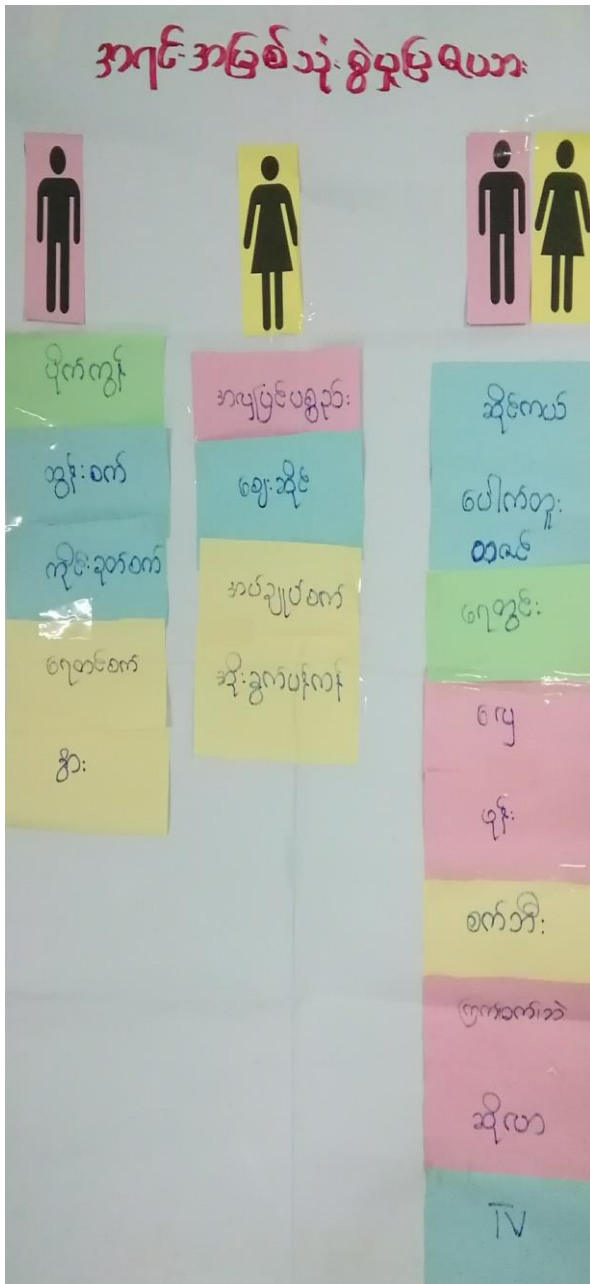 အရင်းအမြစ်သုံးစွဲမှုပြဇယား
ပိုက်ကွန်
ထွန်းစက်
ကိုင်းခုတ်စက်
ရေတင်စက်
နွား
အလှပြင်ပစ္စည်း
ဈေးဆိုင်
အပ်ချုပ်စက်
အိုးခွက်ပန်းကန်
ဆိုင်ကယ်
ပေါက်တူး
တဇင်
ရေတွင်း
လှေ
ဖုန်း
စက်ဘီး
ကြက်၊ဝက်၊ဘဲ
ဆိုလာ
TV